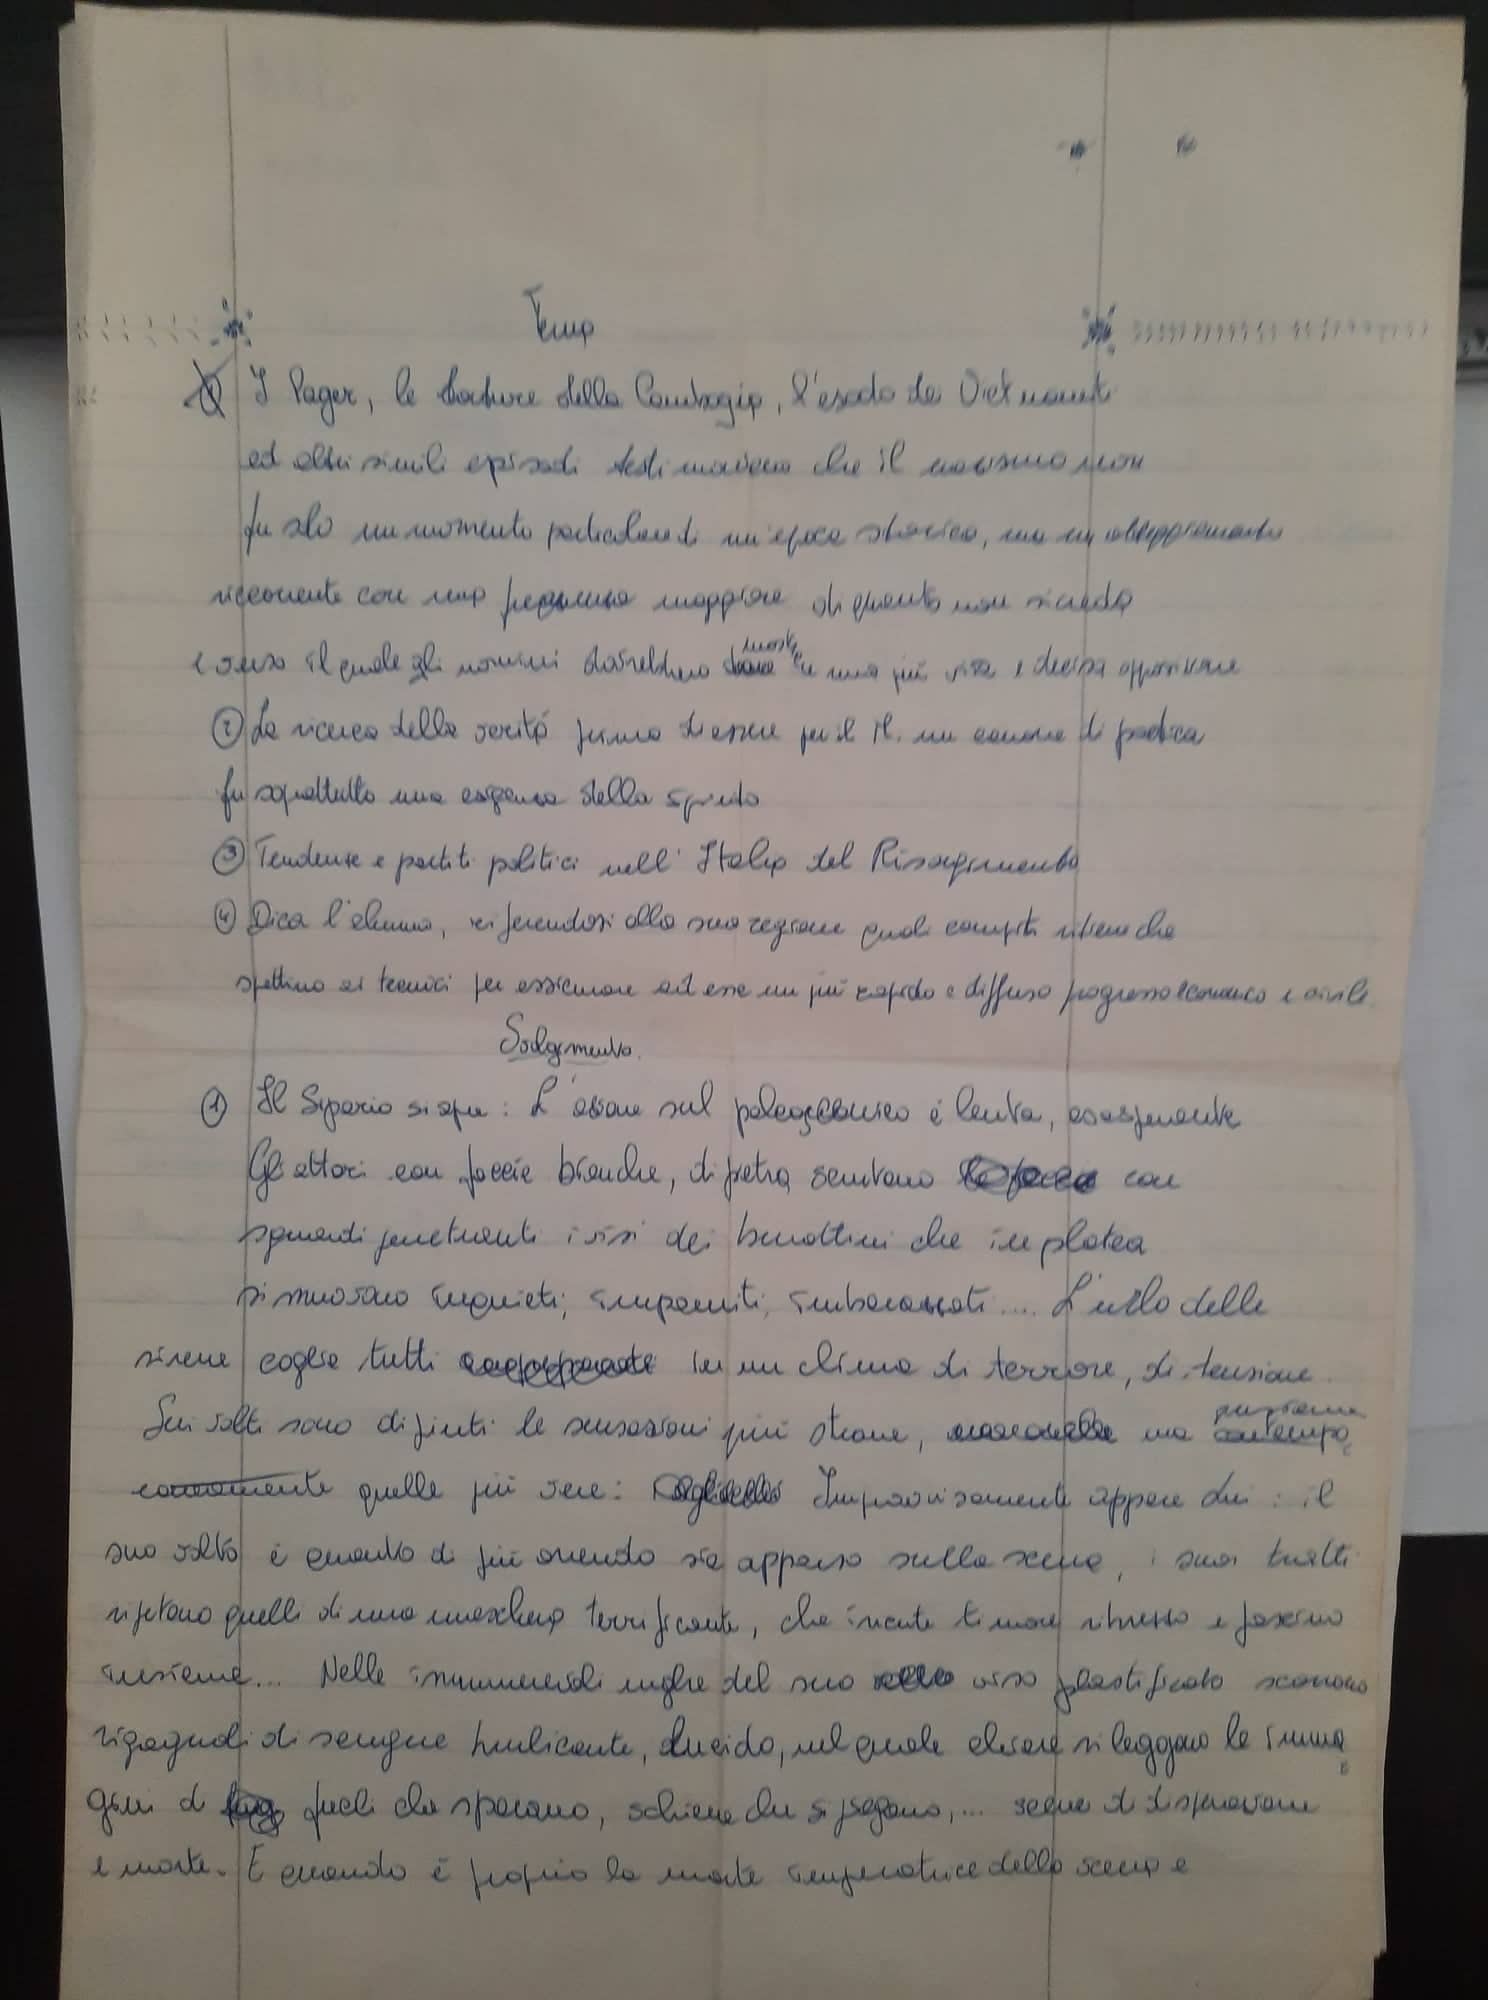 Tema
① I Lager, le torture della Cambogia, l'esodo dei Vietnamiti
ed altri simili episodi testimoniano che il nazismo non
fu solo un momento particolare di un'epoca storica, ma un atteggiamento
ricorrente con una frequenza maggiore di quanto non si creda
e verso il quale gli uomini dovrebbero essere in una più viva e decisa opposizione
② La ricerca della verità prima di essere per il M. un canone di poetica
fu soprattutto una esigenza dello spirito
③ Tendenze e partiti politici nell'Italia del Risorgimento
④ Dica l'alunno, riferendosi alla sua regione quali compiti ritiene che
spettino ai tecnici per assicurare ad esse un più rapido e diffuso progresso economico e civile.
Svolgimento.
① Il Sipario si apre: L'azione sul palcoscenico è lenta, esasperante
Gli attori con faccie bianche, di pietra scrutano con
sguardi penetranti i visi dei burattini che in platea
si muovono inquieti, impauriti, imbarazzati.... L'urlo delle
sirene coglie tutti in un clima di terrore, di tensione.
Sui volti sono dipinti le sensazioni più strane, ma
quelle più vere: Improvvisamente appare Lui: il
suo volto è quanto di più orrendo sia apparso sulla scena, i suoi tratti
ripetono quelli di una maschera terrificante, che incute timore ribrezzo e fascino
insieme... Nelle innumerevoli rughe del suo viso plastificato scorrono
rigagnoli di sangue brulicante, lucido, nel quale chiare si leggono le imma
gini di fucili che sparano, schiene che si piegano,... scene di disperazione
e morte. E quando è proprio la morte imperatrice della scena e